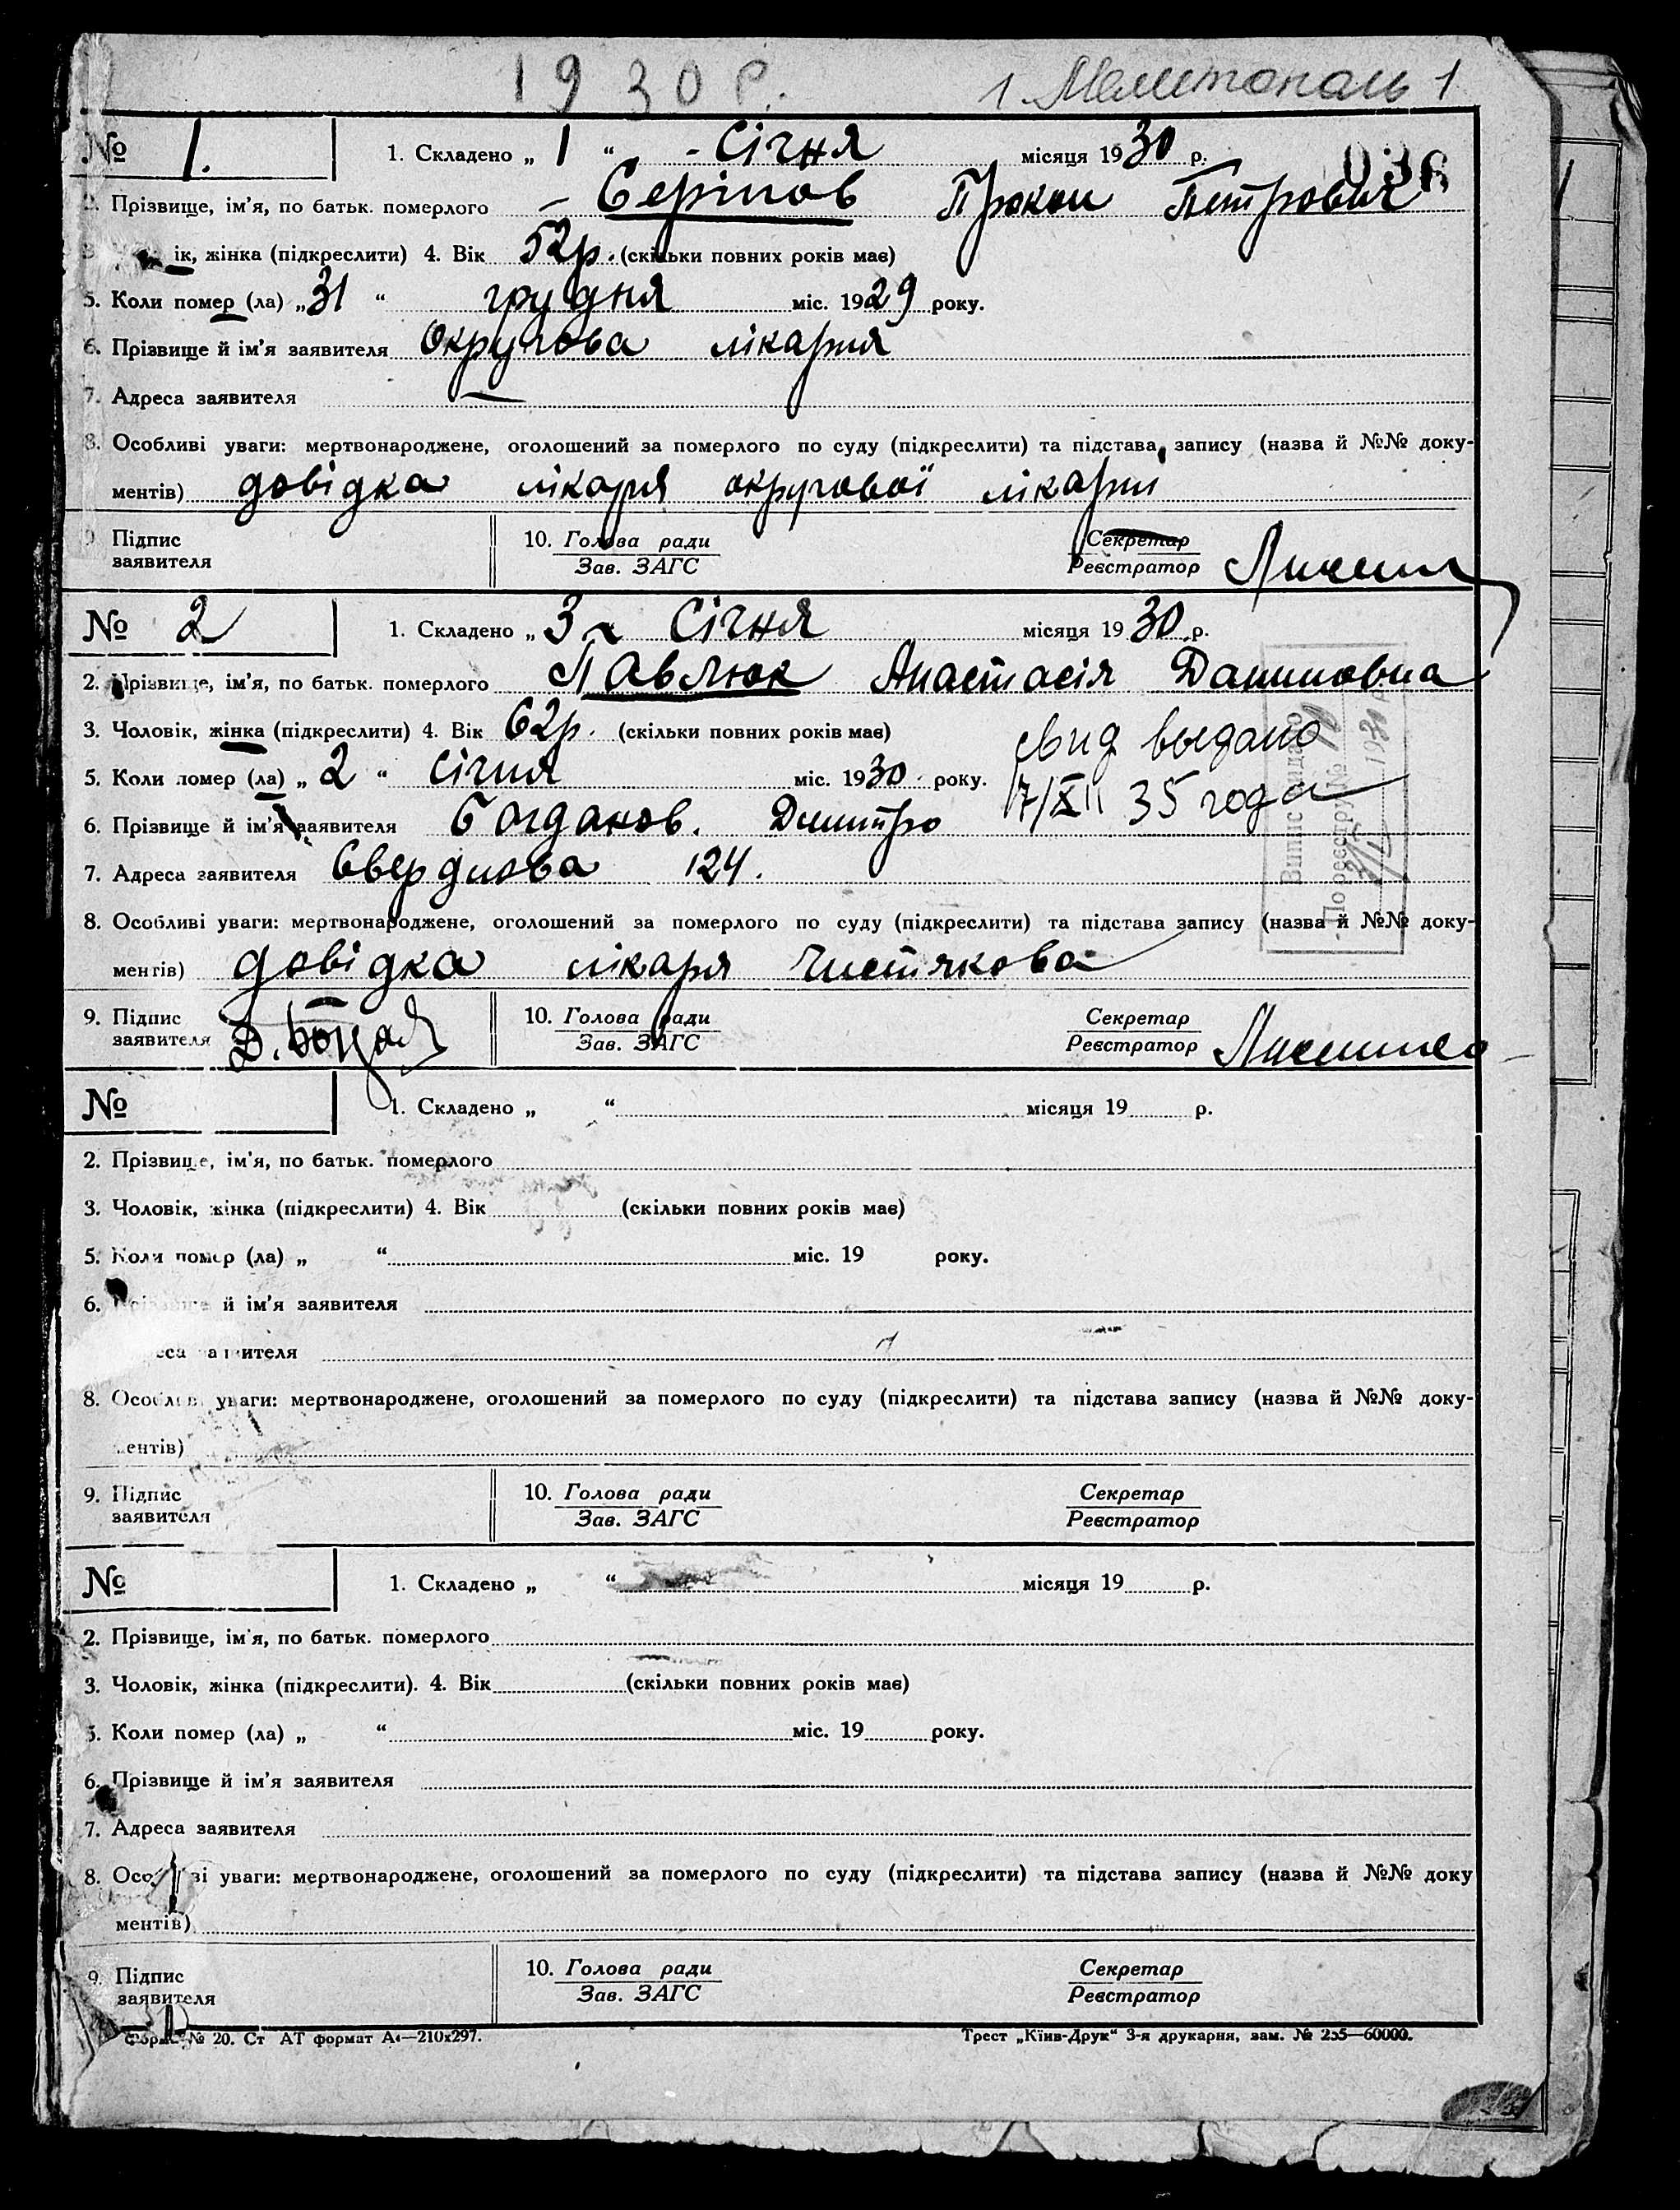 1930 р. 1. Мелитополь 1
№ 1. 1. Складено „ 1 “ - Січня місяця 1930 р. 036
2. Прізвище, ім'я, по батьк. померлого – Прокоп Петрович
ік, жінка (підкреслити) 4. Вік 52р. (скільки повних років має)
5. Коли помер (ла) „ 31 “ грудня міс. 1929 року.
6. Прізвище й ім'я заявителя Округова лікарня
7. Адреса заявителя —
8. Особливі уваги: мертвонароджене, оголошений за померлого по суду (підкреслити) та підстава запису (назва й №№ доку-
ментів) довідка лікаря округової лікарні
9. Підпис 10. Голова ради Секретар
заявителя Зав. ЗАГС Реєстратор
№ 2 1. Складено „ 3 “ Січня місяця 1930 р.
2. Прізвище, ім'я, по батьк. померлого Павлюк Анастасія Даниловна
3. Чоловік, жінка (підкреслити) 4. Вік 62р. (скільки повних років має) свид выдано
5. Коли помер (ла) „ 2 “ січня міс. 1930 року. 7/XII 35 года
6. Прізвище й ім'я заявителя Богданов. Дмитро
7. Адреса заявителя Свердлова 124.
Випис видано
По реєстру №
8. Особливі уваги: мертвонароджене, оголошений за померлого по суду (підкреслити) та підстава запису (назва й №№ доку-
ментів) довідка лікаря Чистякова
9. Підпис 10. Голова ради Секретар
заявителя Зав. ЗАГС Реєстратор
№ 1. Складено „ “ місяця 19 р.
2. Прізвище, ім'я, по батьк. померлого
3. Чоловік, жінка (підкреслити) 4. Вік (скільки повних років має)
5. Коли помер (ла) „ “ міс. 19 року.
6. й ім'я заявителя
заявителя
8. Особливі уваги: мертвонароджене, оголошений за померлого по суду (підкреслити) та підстава запису (назва й №№ доку-
ментів)
9. Підпис 10. Голова ради Секретар
заявителя Зав. ЗАГС Реєстратор
№ 1. Складено „ “ місяця 19 р.
2. Прізвище, ім'я, по батьк. померлого
3. Чоловік, жінка (підкреслити). 4. Вік (скільки повних років має)
5. Коли помер (ла) „ “ міс. 19 року.
6. Прізвище й ім'я заявителя
7. Адреса заявителя
8. Особливі уваги: мертвонароджене, оголошений за померлого по суду (підкреслити) та підстава запису (назва й №№ доку
ментів)
9. Підпис 10. Голова ради Секретар
заявителя Зав. ЗАГС Реєстратор
Форма № 20. Ст АТ формат А4—210x297. Трест „Київ-Друк“ 3-я друкарня, зам. № 255—60000.